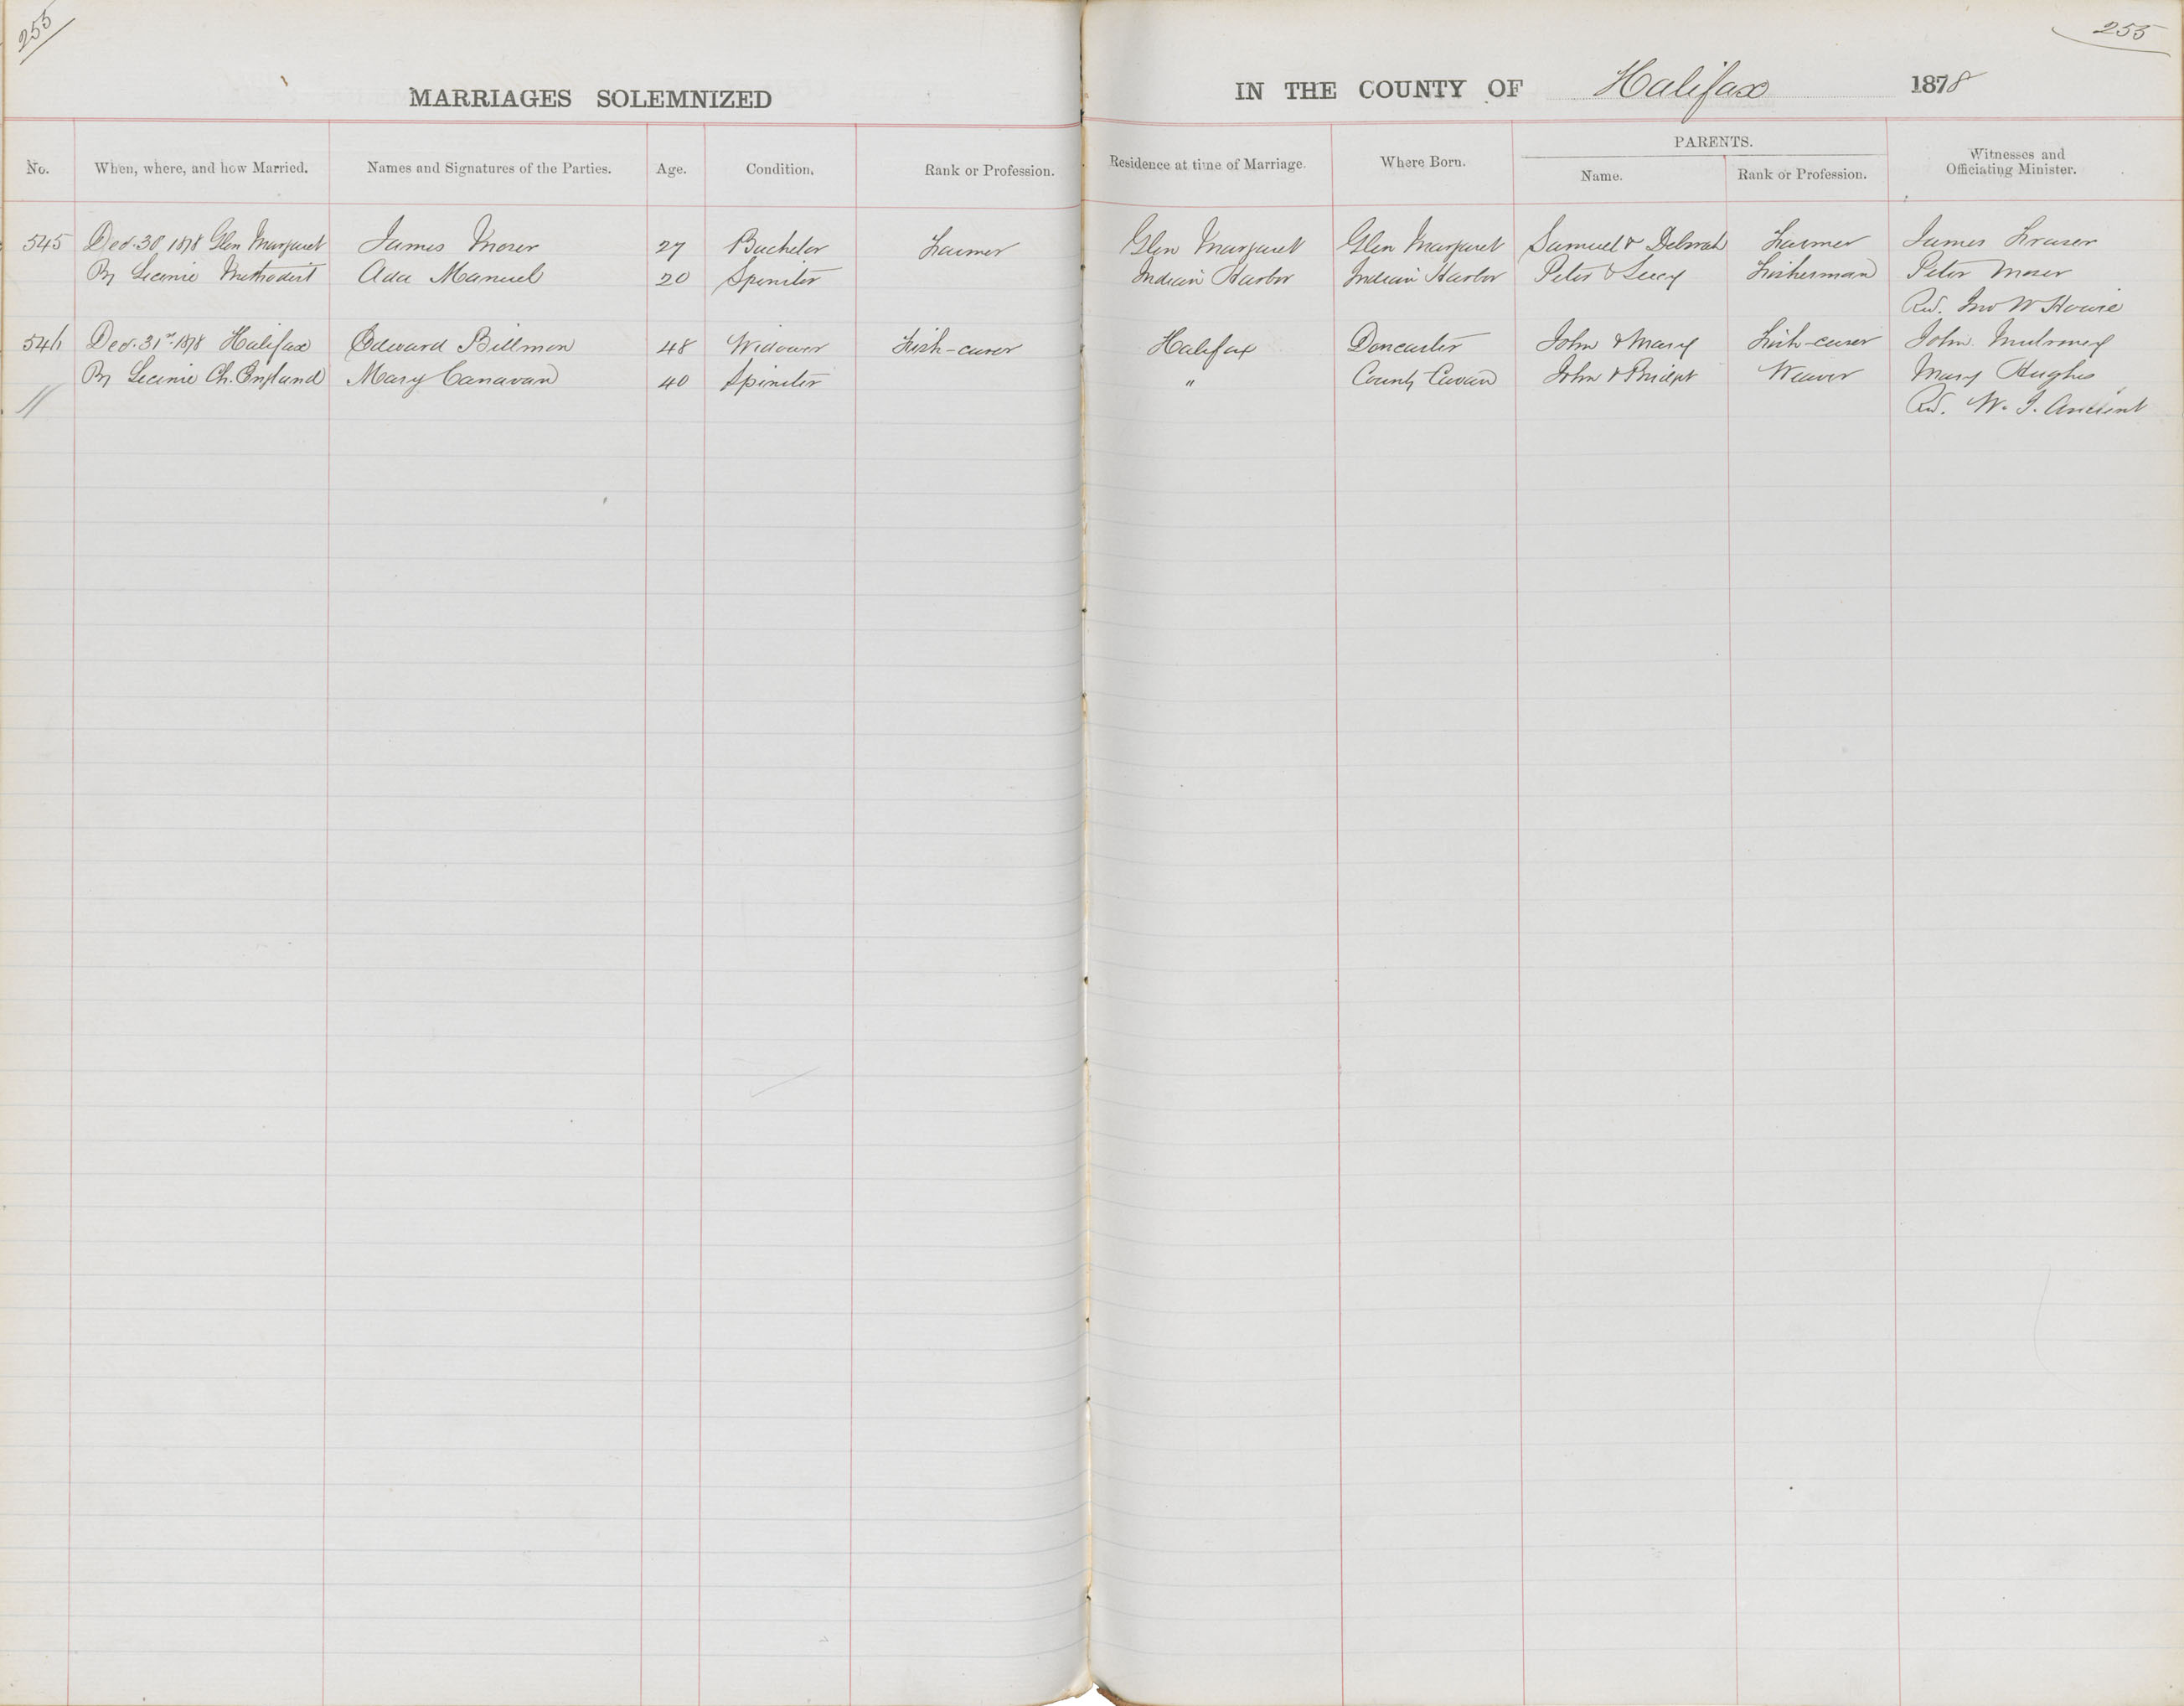 255
255
MARRIAGES SOLEMNIZED IN THE COUNTY OF Halifax 1878
PARENTS.
No. When, where, and how Married. Names and Signatures of the Parties. Age. Condition. Rank or Profession. Residence at time of Marriage. Where Born. Name. Rank or Profession. Witnesses and Officiating Minister.
545 Dec. 30 1878 Glen Margaret James Moser 27 Bachelor Farmer Glen Margaret Glen Margaret Samuel & Deborah Farmer James Fraser
By License Methodist Ada Manuel 20 Spinster Indian Harbor Indian Harbor Peter & Lucy Fisherman Peter Moser
Rev. Jno W Howie
546 Dec. 31st 1878 Halifax Edward Billman 48 Widower Fish-curer Halifax Doncaster John & Mary Fish-curer John
By License Ch. England Mary Canavan 40 Spinster " County Cavan John & Bridget Weaver Mary Hughes
Rev. W. J. Ancient